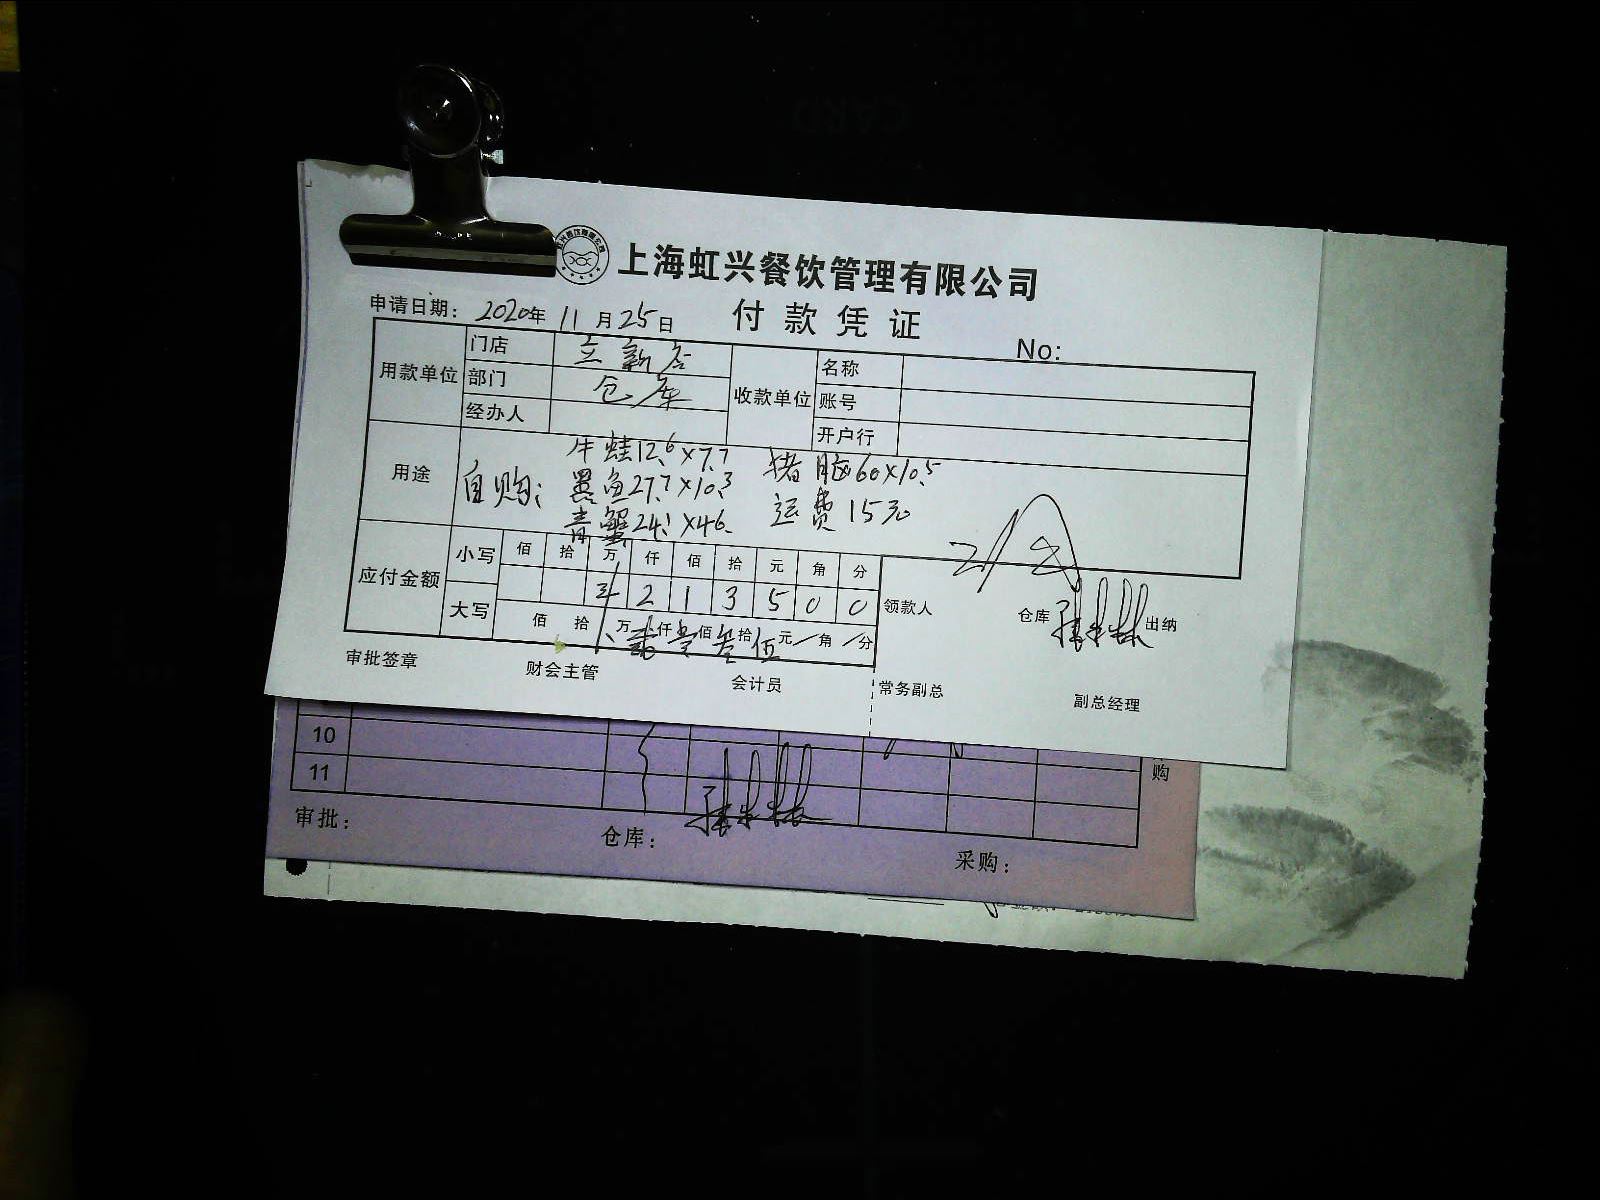 上海虹兴餐饮管理有限公司
付款凭证
申请日期: 2020年 11月25日
No:
用款单位 门店 立新店 收款单位 名称
部门 仓库 账号
经办人 开户行
用途 自购: 牛蛙12.6×7.7 猪脑60×10.5
墨鱼27.7×10.3 运费15元
青蟹24.1×46.
应付金额 小写 佰 拾 万 仟 佰 拾 元 角 分
2 1 3 5 0 0
大写 佰 拾 万贰仟壹佰叁拾伍元/角/分
领款人 仓库 出纳
审批签章 财会主管 会计员 常务副总 副总经理
10
11
购
审批: 仓库: 采购: